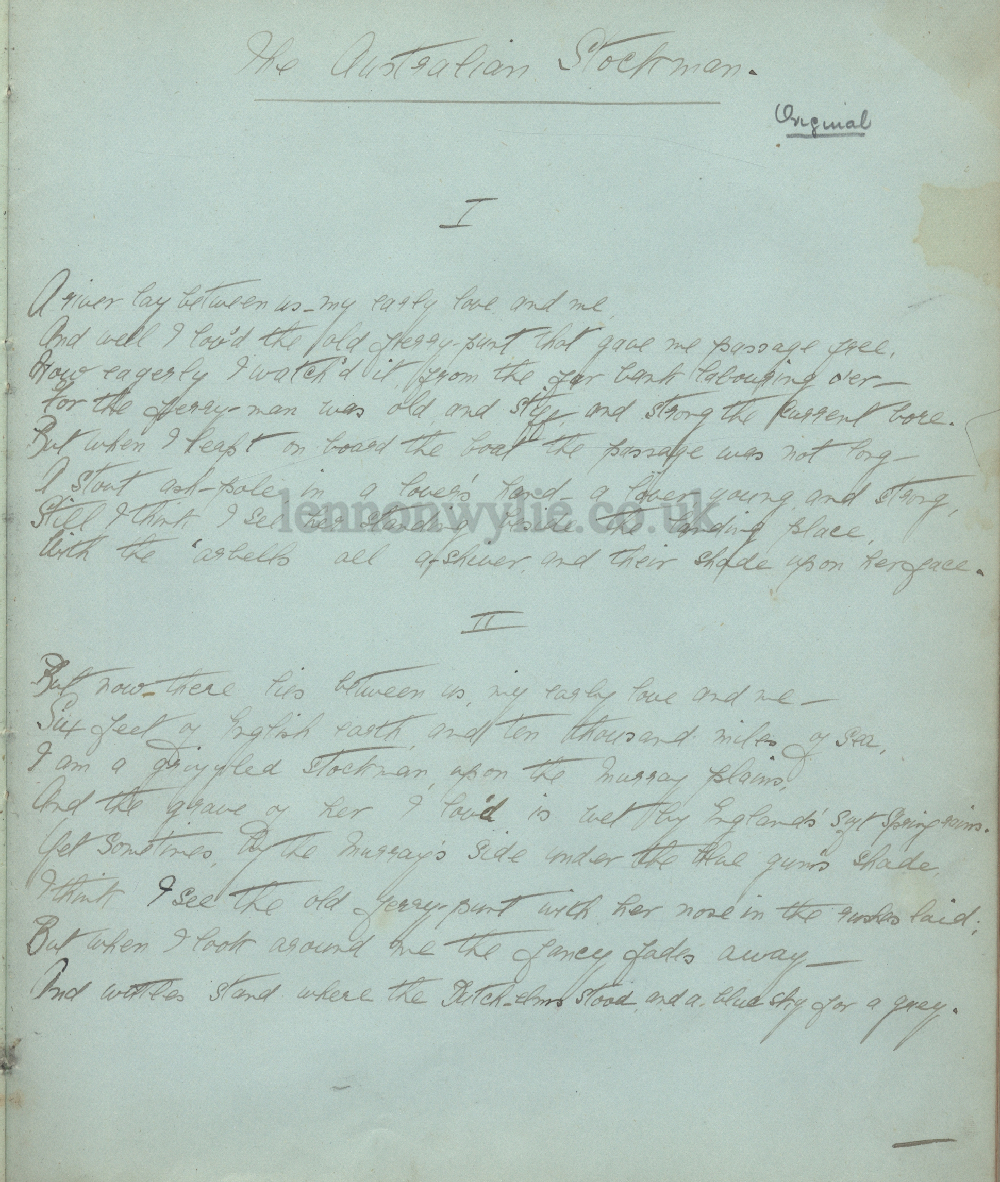 The Australian Stockman.
Original
I
A river lay between us - my early love and me,
And well I lov'd the old ferry-punt that gave me passage free.
How eagerly I watch'd it, from the far bank labouring o'er -
For the ferry-man was old and stiff, and strong the current bore.
But when I leapt on board the boat the passage was not long -
A stout ash-pole in a lover's hand - a lover young and strong,
Still I think I see her standing beside the landing place,
With the all a-shiver, and their shade upon her face.
lennonwylie.co.uk
II
But now there lies between us, my early love and me -
Six feet of English earth, and ten thousand miles of sea,
I am a grizzled stockman, upon the Murray plains,
And the grave of her I lov'd is wet by Englands' soft Spring rains.
Yet sometimes, By the Murray's side under the blue gum's shade,
I think I see the old ferry-punt with her nose in the rushes laid;
But when I look around me the fancy fades away -
And wattles stand where the Dutch-elms stood, and a blue sky for a grey.